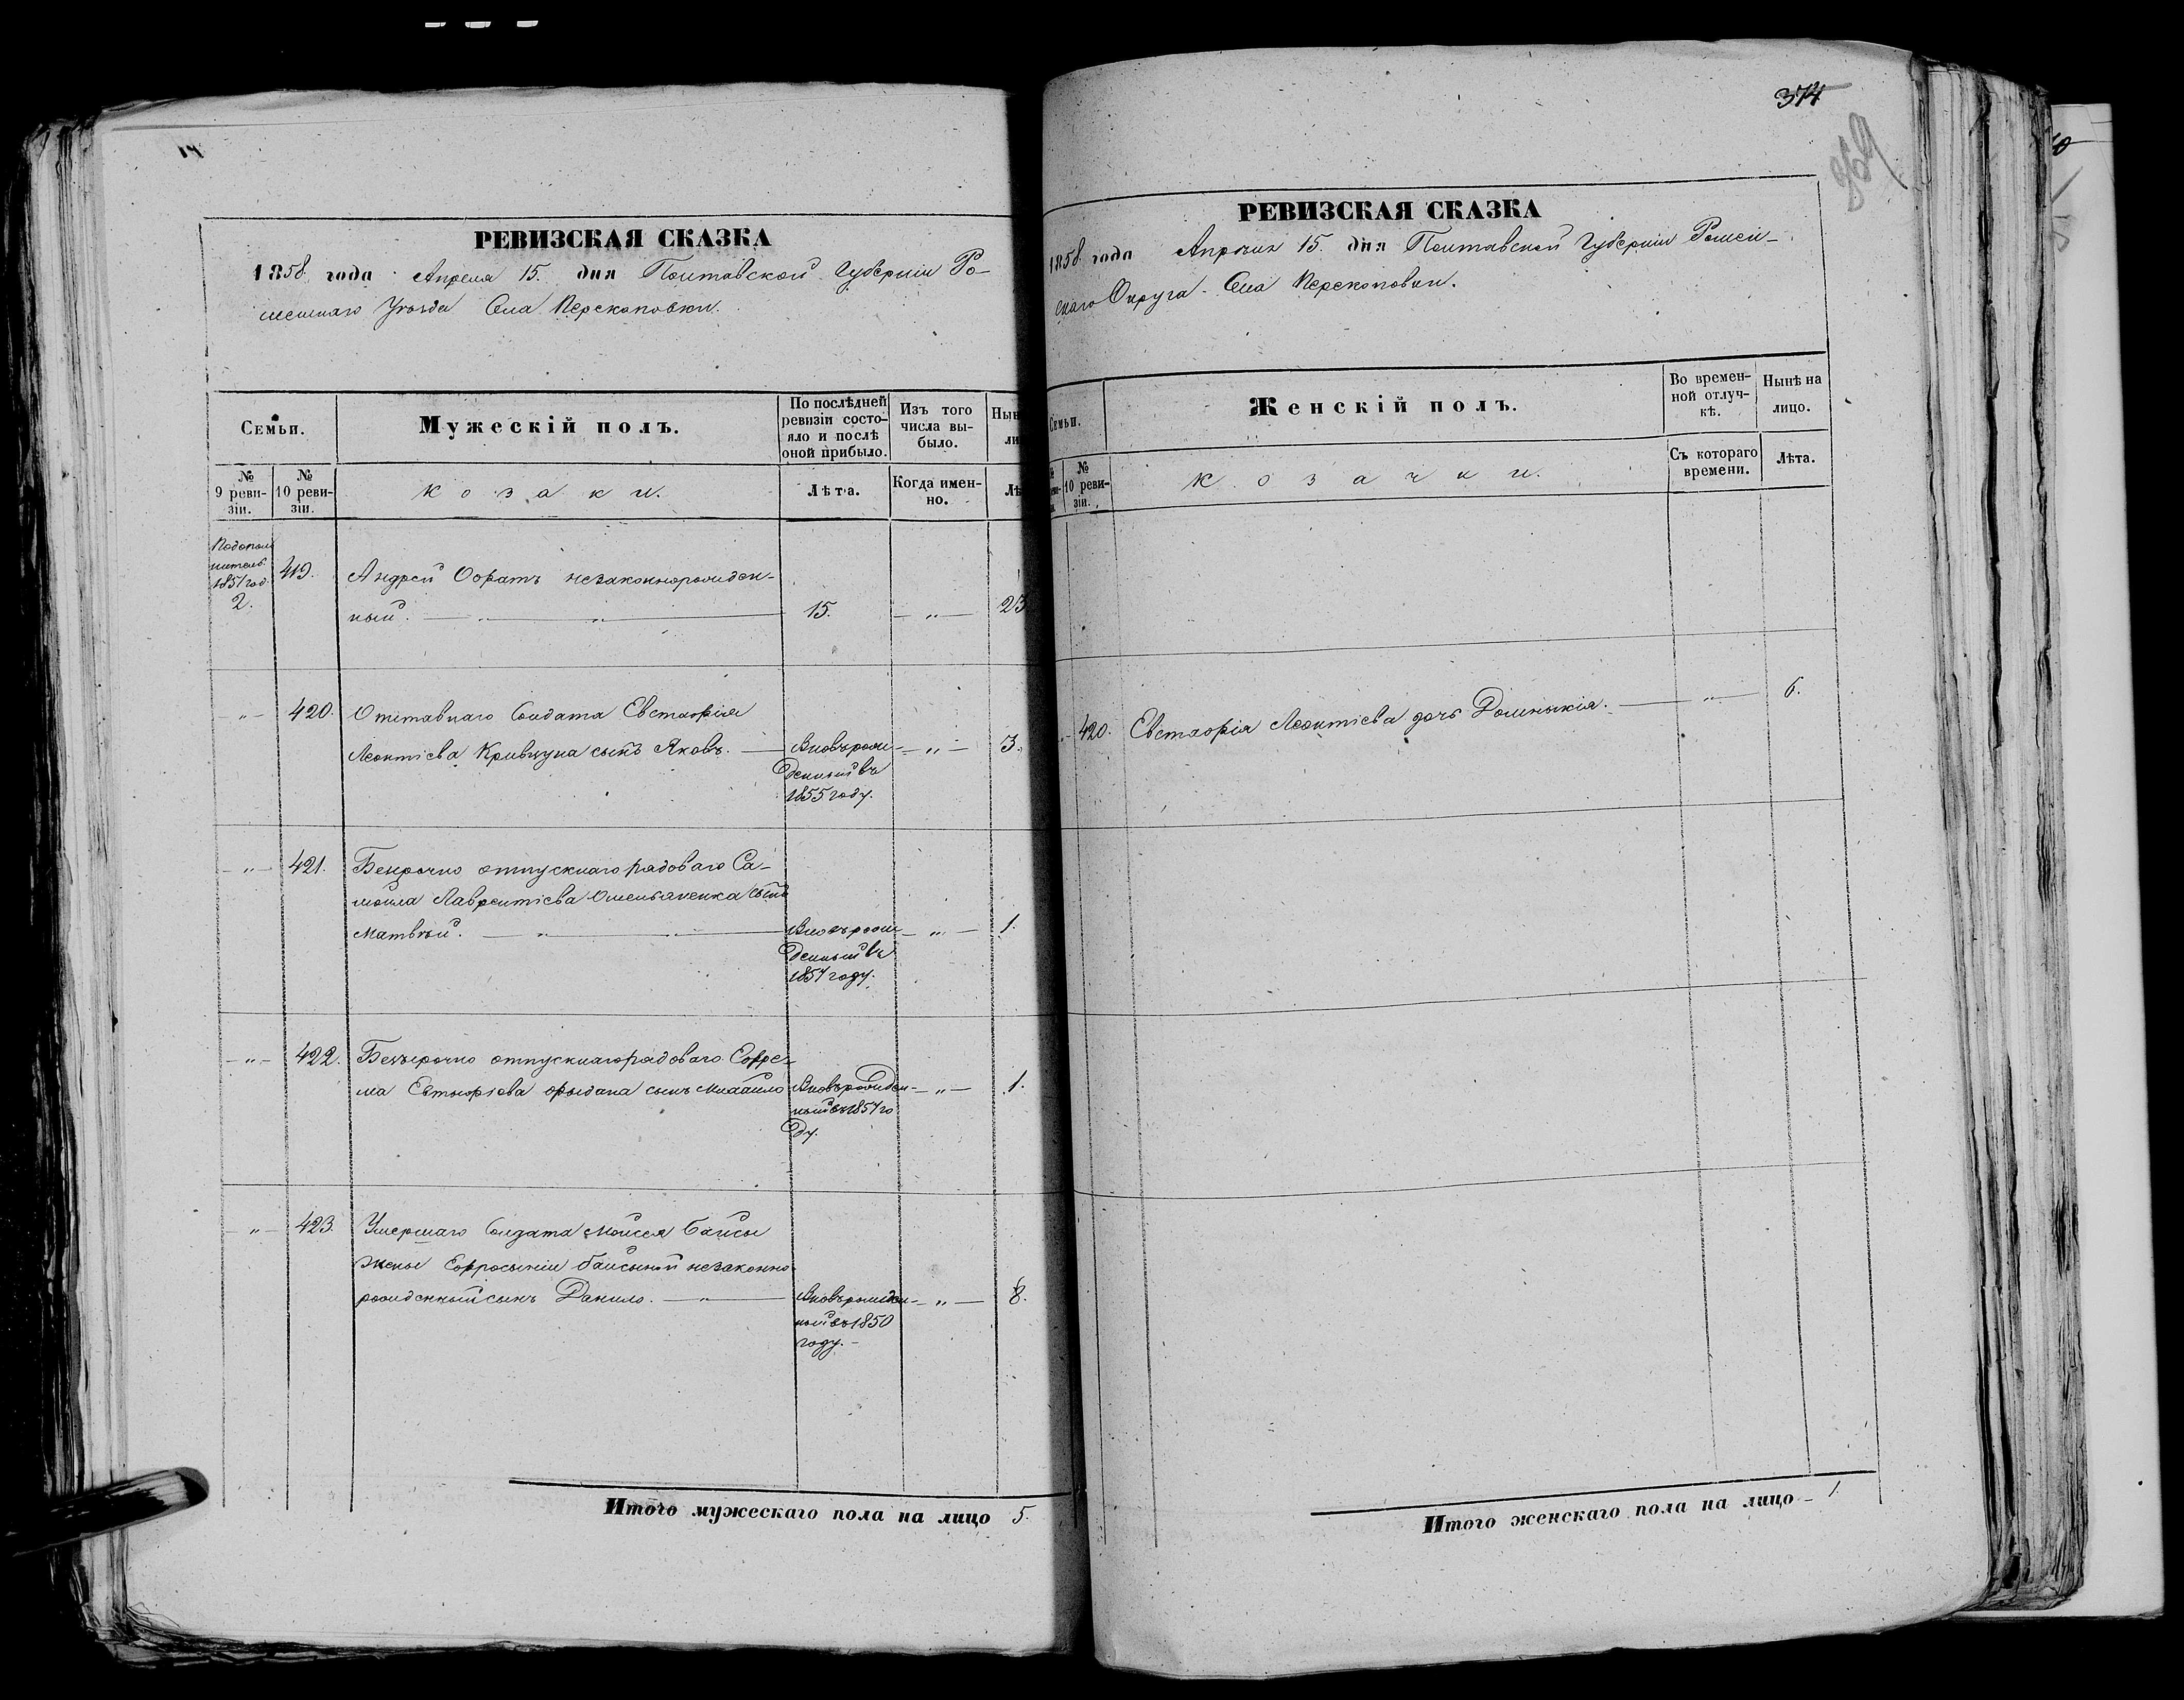 РЕВИЗСКАЯ СКАЗКА
1858 года Апреля 15. дня Полтавской Губерніи Ро-
менскаго Уѣзда Села Перекоповки.
Семьи.
Мужескій полъ.
По послѣдней ревизіи состо-яло и послѣ оной прибыло.
Изъ того числа вы-было.
№ 9 реви-зіи.
№ 10 реви-зіи.
Козаки.
Лѣта.
Когда имен-но.
По дополнитель. 1851 год. 2.
419.
Андрей незаконнорожден-
ный. — „ — „ — 15. — „ — 23
— „ — 420. Отставнаго Солдата Евстафія
Леонтіева Кривцуна сынъ Яковъ. — Вновь рож- — „ — 3.
денный въ
1855 году.
— „ — 421. Безсрочно отпускнаго рядоваго Са-
мойла Лаврентіева Омельяненка сынъ
Матвѣй. — „ — „ — Вновь рож- — „ — 1.
денный въ
1857 году.
— „ — 422. Безсрочно отпускнаго рядоваго Ефре-
ма сынъ Михайло Вновь рожден- — „ — 1.
ный въ 1857 го
ду.
— „ — 423. Умершаго Солдата Мойсея Байсы
жены Ефросиніи Байсыной незаконно
рожденный сынъ Данило. — „ — Вновь рожден- — „ — 8.
ный въ 1850
году. —
Итого мужескаго пола на лицо 5.
374
369
РЕВИЗСКАЯ СКАЗКА
1858 года Апрѣля 15. дня Полтавской Губерніи Ромен-
скаго Округа Села Перекоповки.
Семьи.
Женскій полъ.
Во времен-ной отлуч-кѣ.
Нынѣ на лицо.
№ 10 реви-зіи.
Козачки.
Съ котораго времени.
Лѣта.
420. Евстафія Леонтіева дочь Домникія. — „ — 6.
Итого женскаго пола на лицо — 1.